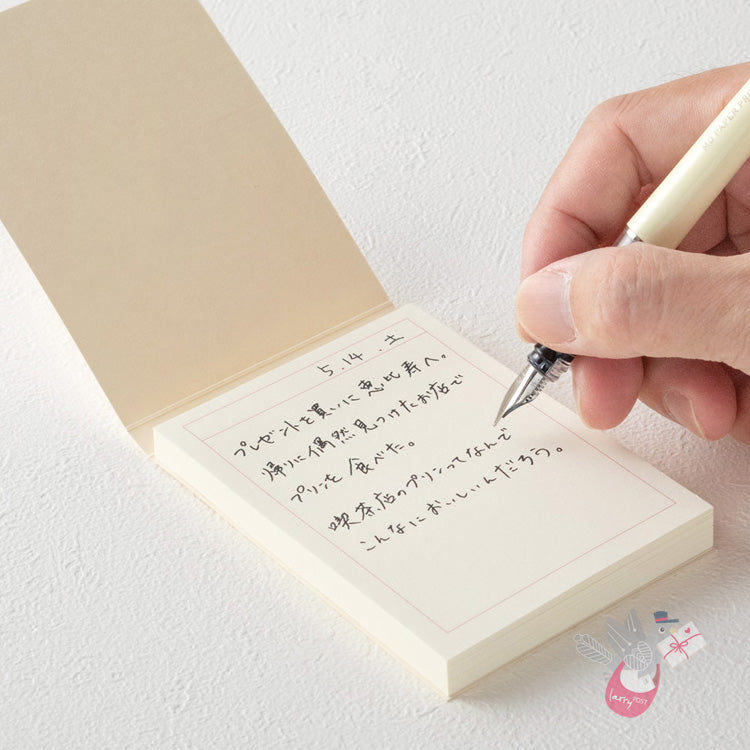 5.14.土
プレゼントを買いに恵比寿へ。
帰りに偶然見つけたお店で
プリンを食べた。
喫茶店のプリンってなんで
こんなにおいしいんだろう。
MD PAPER PRO
larrypost